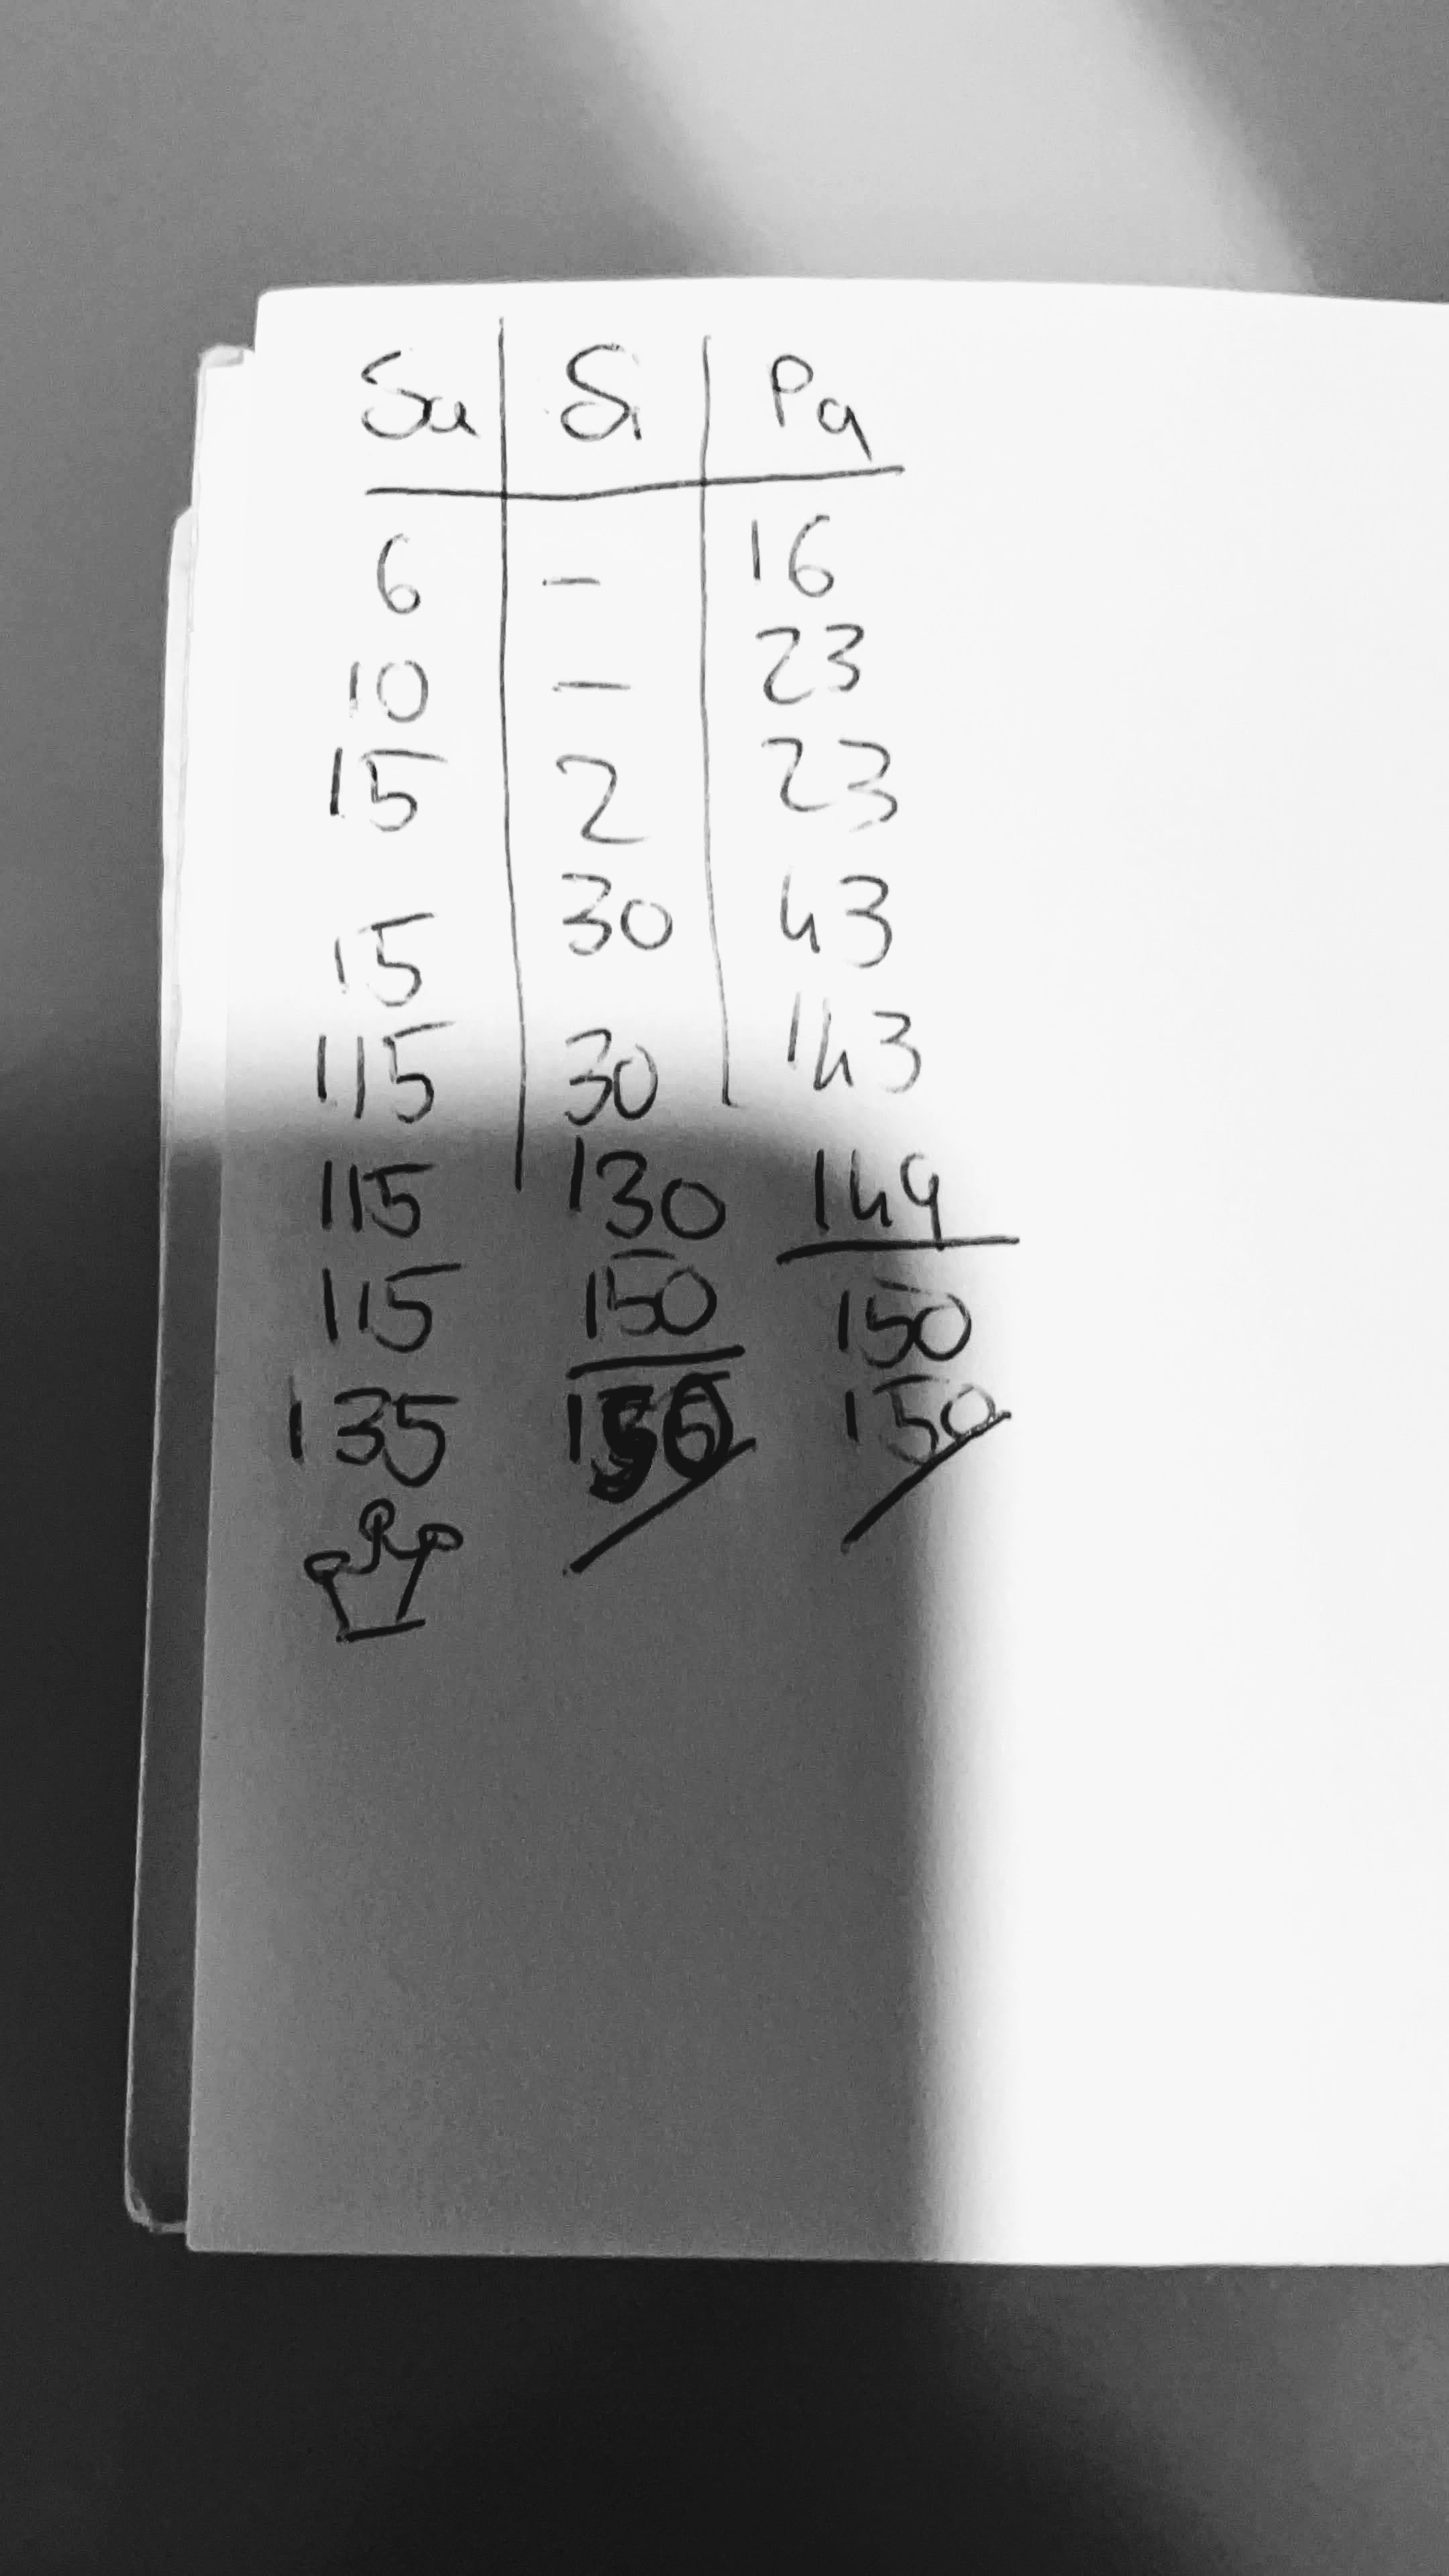 Su Si Pa
6 - 16
10 - 23
15 2 23
15 30 43
115 30 143
115 130 149
115 150 150
135 156 150